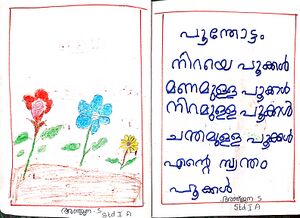 പൂന്തോട്ടം
നിറയെ പൂക്കൾ
മണമുള്ള പൂക്കൾ
നിറമുള്ള പൂക്കൾ
ചന്തമുള്ള പൂക്കൾ
എന്റെ സ്വന്തം
പൂക്കൾ
S
Std I A
S
Std I A